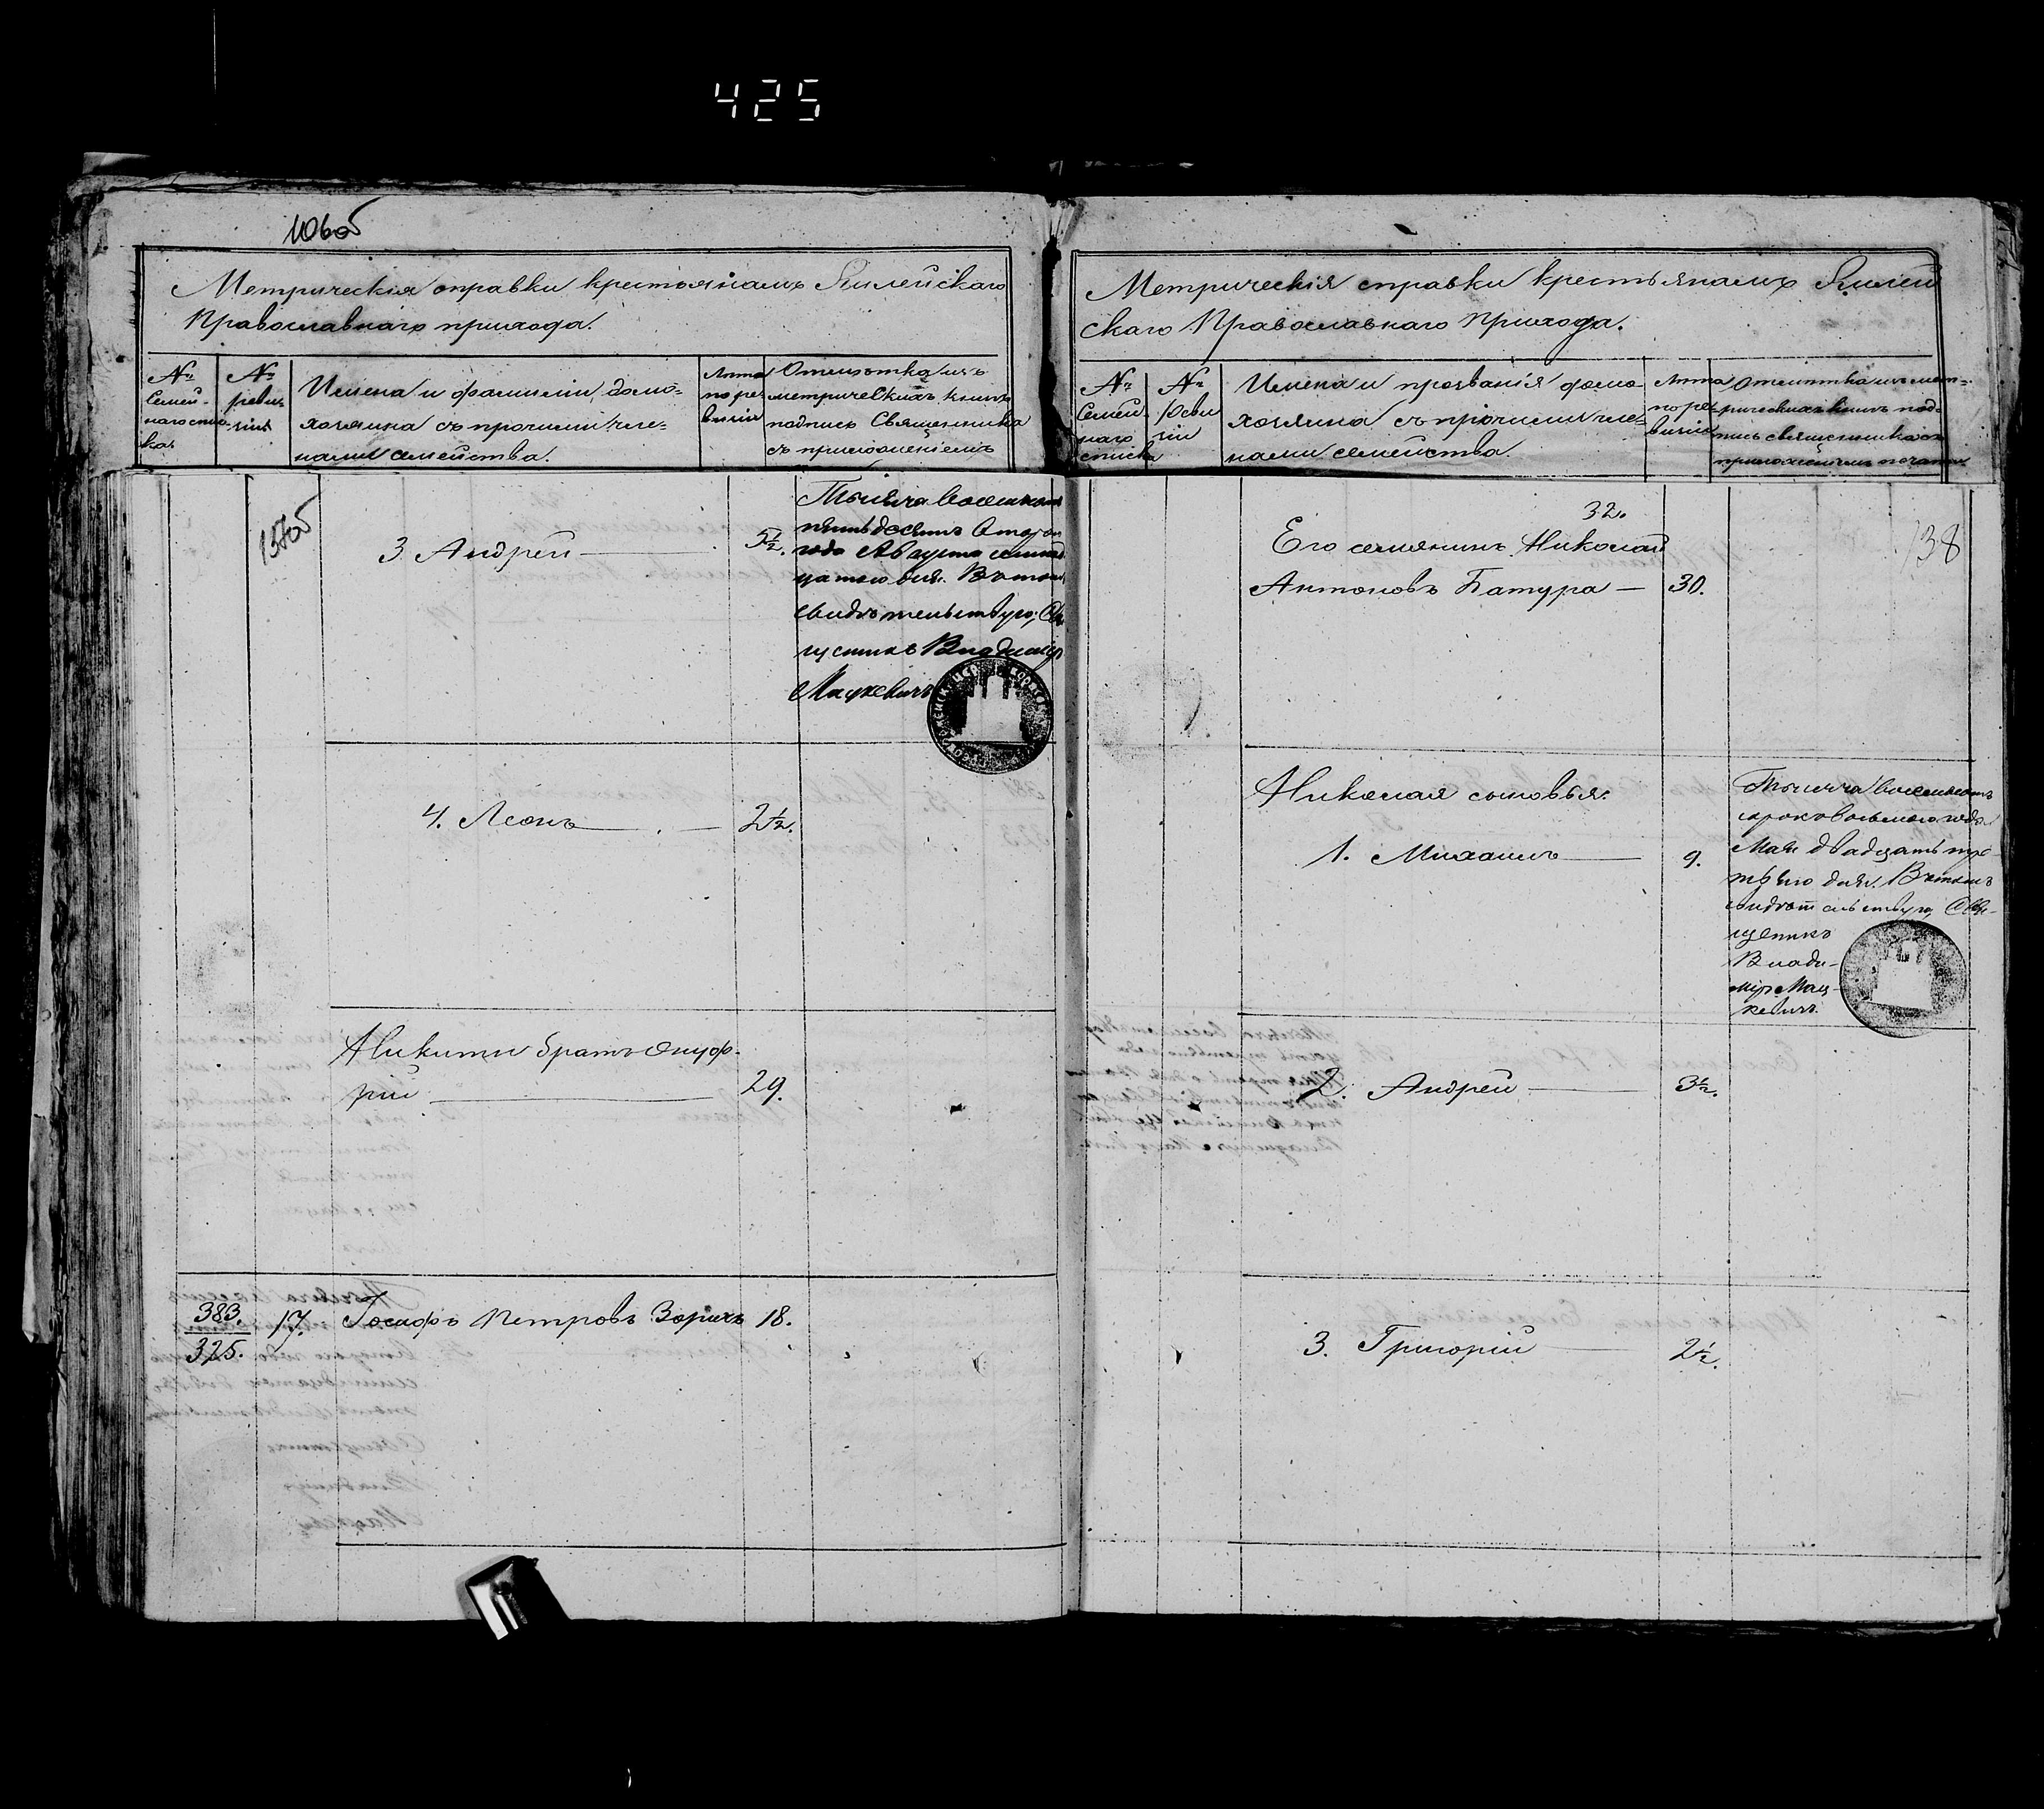 425
106об
Метрическія справки крестьянамъ Килейскаго
Православнаго прихода.
№ Семей-наго спис-ка
№ реви-зіи
Имена и фамиліи домо-
хозяина съ прочими чле-
нами семейства.
Лѣта по ре-визіи
Отмѣтка изъ
метрическихъ книгъ
подпись Священника
съ приложеніемъ
137об
3. Андрей 5½.
Тысяча восемьсотъ
пятьдесятъ втораго
года Августа
дня. Въ томъ
свидѣтельствую, Свя-
щенникъ Владиміръ
Мацкевичъ
4. Леонъ 2½.
Никиты братъ Онуф-
рій 29.
383. 17. Іосифъ Петровъ Зоричъ 18.
325.
Метрическія справки крестьянамъ Килей
скаго Православнаго Прихода.
№ Семей наго списка
№ Реви зіи
Имена и прозванія домо-
хозяина съ прочими чле-
нами семейства.
Лѣта по ре-визіи
Отмѣтка изъ мет-
рическихъ книгъ под-
пись священника съ
приложеніемъ печати
32.
138
Его семянинъ Николай
Антоновъ Батура — 30.
Николая сыновья:
1. Михаилъ 9.
Тысяча восемьсотъ
сороковосьмого года
Мая двадцать тре-
тьяго дня. Въ томъ
свидѣтельствую, Свя-
щеникъ
Влади-
міръ Мац-
кевичъ.
2. Андрей 3½.
3. Григорій 2½.